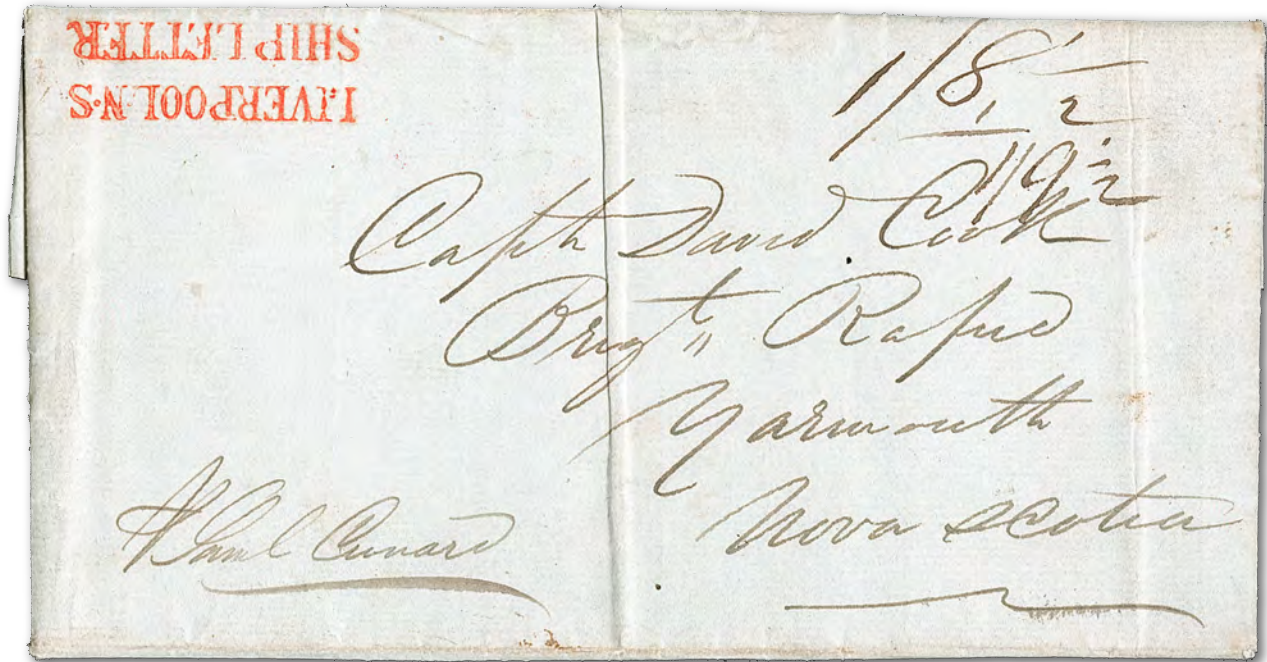 LIVERPOOL·N·S
SHIP LETTER
1/8 1/2
1/9 1/2
Captn David Cook
Brigt " Rapid
Yarmouth
Nova Scotia
Saml Cunard